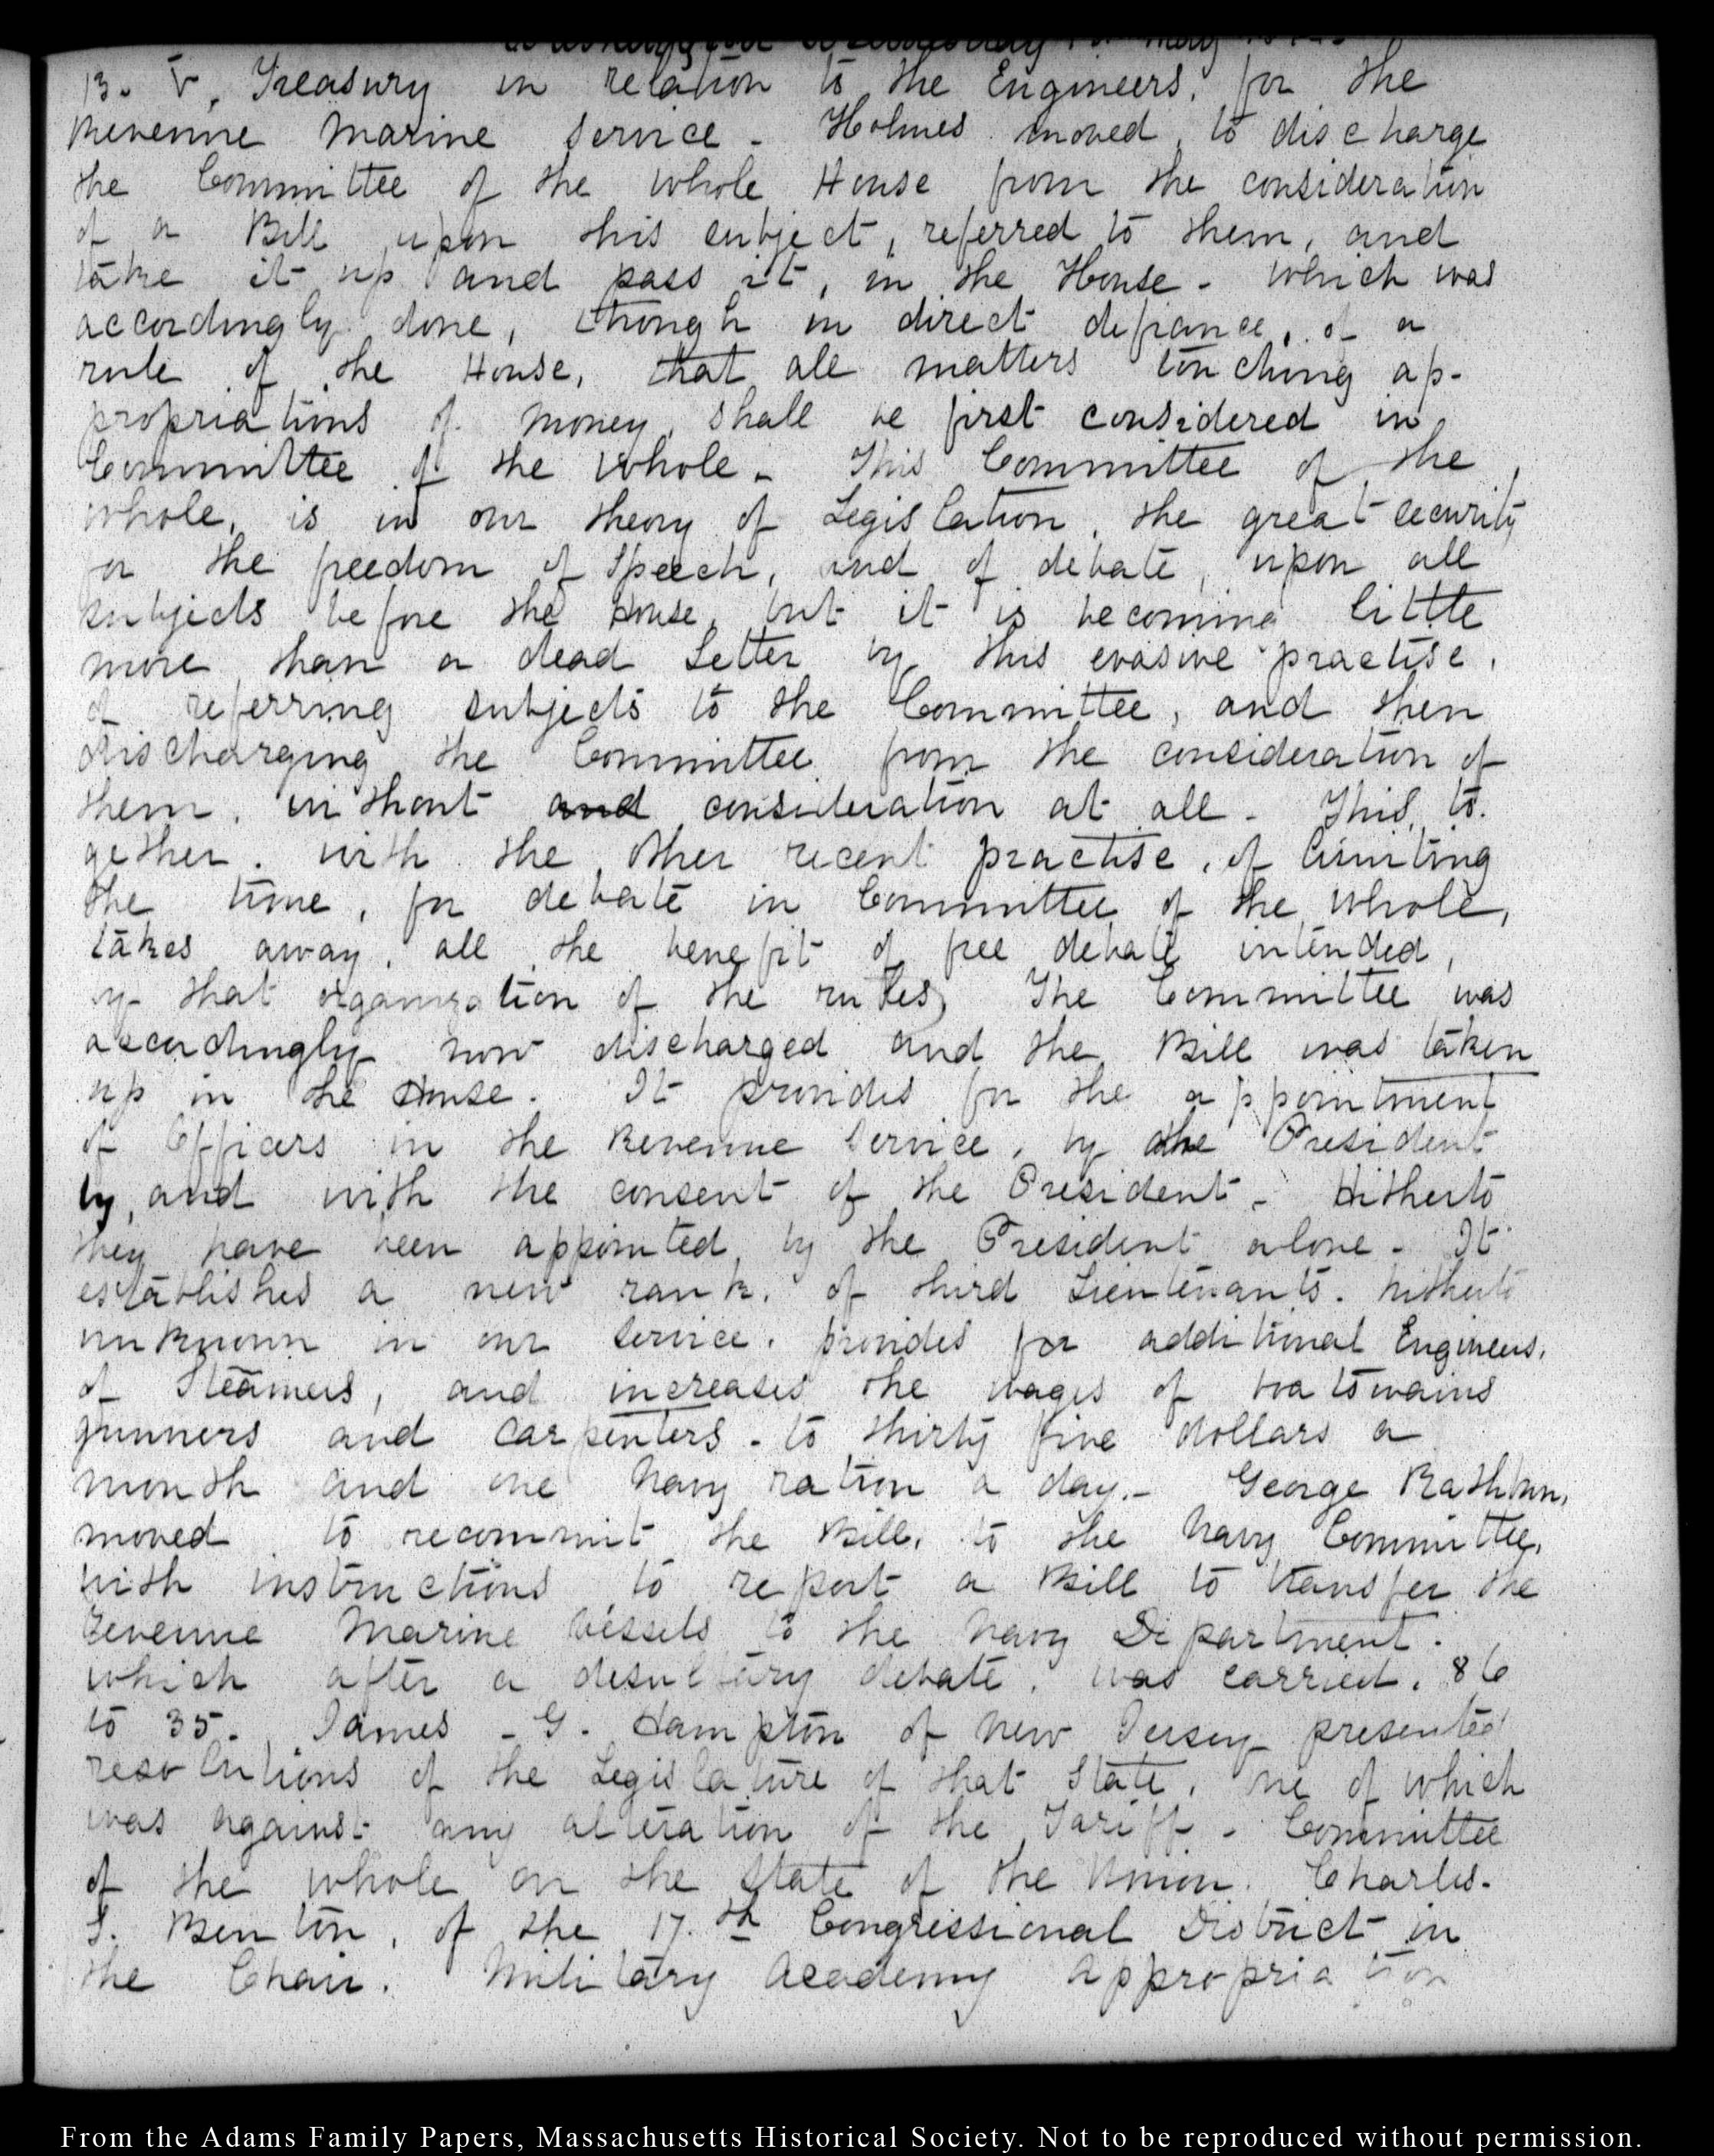 Washington Wednesday 13 May
13. V. Treasury in relation to the Engineers, for the
Revenue Marine Service - Holmes moved, to discharge
the Committee of the whole House from the consideration
of a Bill upon this subject, referred to them, and
take it up and pass it, in the House - which was
accordingly done, though in direct defiance, of a
rule of the House, that all matters touching ap-
propriations of money, shall be first considered in
Committee of the Whole - This Committee of the
whole, is in our theory of Legislation, the great security
for the freedom of Speech, and of debate, upon all
subjects before the House, but it is becoming little
more than a dead Letter by this evasive practise,
of referring subjects to the Committee, and then
discharging the Committee from the consideration of
them, without and consideration at all - This, to-
gether, with the other recent practise, of limiting
the time, for debate in Committee of the whole,
takes away, all the benefit of free debate intended,
by that organization of the rules, The Committee was
accordingly now discharged and the Bill was taken
up in the House. It provides for the appointment
of Officers in the Revenue Service, by the President
by, and with the consent of the President - Hitherto
they have been appointed, by the President alone - It
establishes a new rank, of third Lieutenants. hitherto
unknown in our service, provides for additional Engineers,
of Steamers, and increases the wages of boatswains
gunners and carpenters - to thirty five dollars a
month and one Navy ration a day. - George Rathbun,
moved to recommit the Bill, to the Navy Committee,
with instructions to report a Bill to transfer the
revenue Marine Vessels to the Navy Department.
which after a desultory debate, was carried, 86
to 35. James - G. Hampton of New Jersey presented
resolutions of the Legislature of that State, one of which
was against any alteration of the Tariff - Committee
of the whole on the State of the Union. Charles-
S. Benton, of the 17.th Congressional District in
the Chair. Military Academy Appropriation
From the Adams Family Papers, Massachusetts Historical Society. Not to be reproduced without permission.